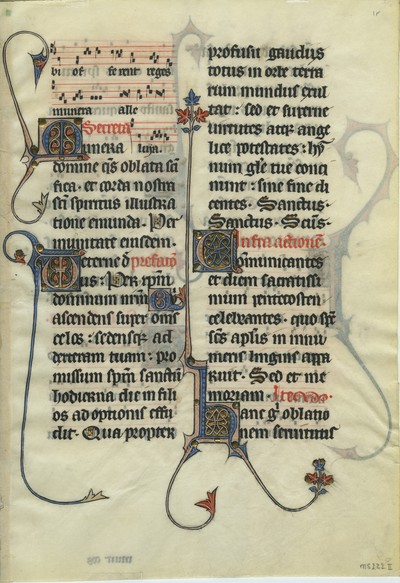 bi of ferent reges
munera alle
Secreta
Munera luia.
domine q̃s oblata sc̃i
fica · et corda nostra
sc̃i spiritus illustra
tione emunda · Per
in unitate eiusdem ·
eterne d̃ prefatio
us : Per xp̃m
dominum nr̃m Qui
ascendens super om̃s
celos : sedensq; ad
dexteram tuam : pro
missum sp̃m sanctum
hodierna die in fili
os adoptionis effu
dit · Qua propter
profusis gaudiis
totus in orbe terra
rum mundus exul
tat : sed et superne
uirtutes atq; ange
lice potestates : hy
mnum gl̃e tue conci
nunt : sine fine di
centes · Sanctus ·
Sanctus · Sc̃us ·
Infra actionem
Com̃unicantes
et diem sacratissi
mum pentecosten
celebrantes · quo sp̃c
sc̃s apl̃is in innu
meris linguis appa
ruit · Sed et me
moriam ·
Hanc g̊ oblatio
nem seruitutis